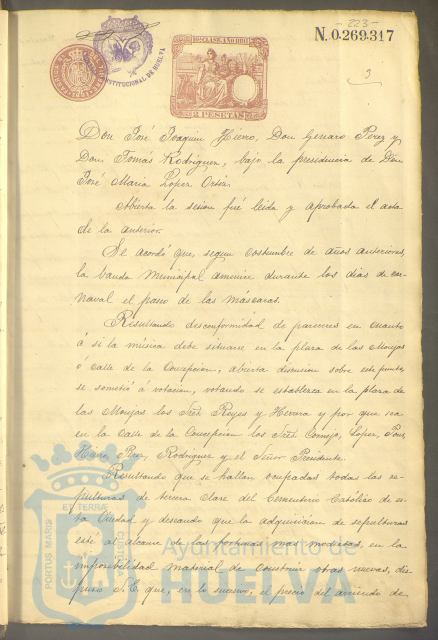 -223-
N. 0.269.317
3
10ª CLASE. AÑO 1901
2 PESETAS
CONSTITUCIONAL DE HUELVA
Don José Joaquin Hierro, Don Genaro Perez y
Don Tomás Rodriguez, bajo la presidencia de Don
José Maria Lopez Ortiz.
Abierta la sesion fué leida y aprobada el acta
de la anterior.
Se acordó que, segun costumbre de años anteriores,
la banda municipal amenice durante los dias de car-
naval el paseo de las máscaras.
Resultando desconformidad de pareceres en cuanto
á si la música debe situarse en la plaza de las Monjas
ó calle de la Concepcion, abierta discusion sobre este punto,
se sometió á votacion, votando se establezca en la plaza de
las Monjas los Sres. Reyes y Hervera y por que sea
en la Calle de la Concepcion los Sres. Cornejo, Lopez,
Hierro, Perez, Rodriguez y el Señor Presidente.
Resultando que se hallan ocupadas todas las se-
pulturas de tercera clase del Cementerio Católico de es-
ta Ciudad y deseando que la adquisicion de sepulturas
esté al alcance de las fortunas mas modestas, en la
imposibilidad material de construir otras nuevas, dis-
puso S.E. que, en lo sucesivo, el precio del arriendo de
PORTUS MARIS ET TERRÆ CUSTODIA
Ayuntamiento de
HUELVA